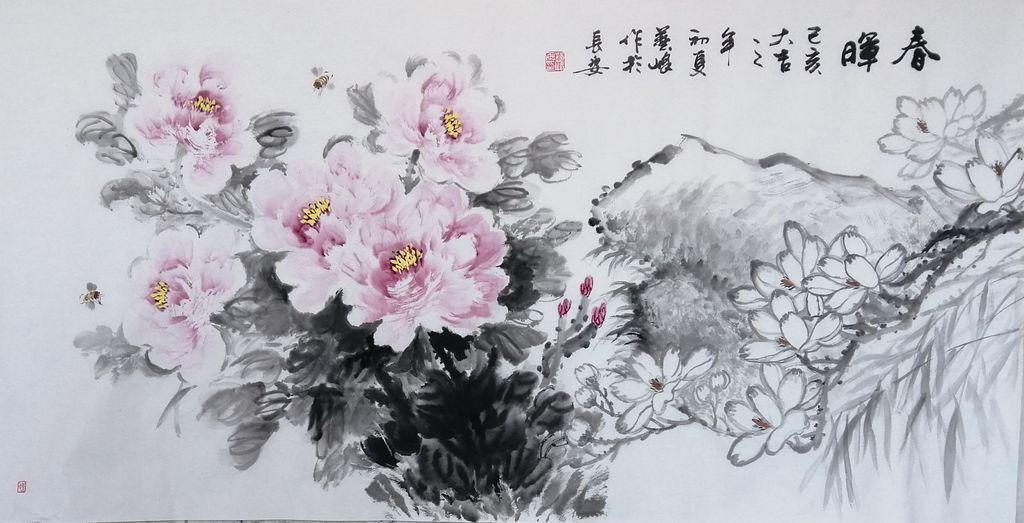 春暉
己亥
大吉之
年
初夏
藝嶺
作於
長安